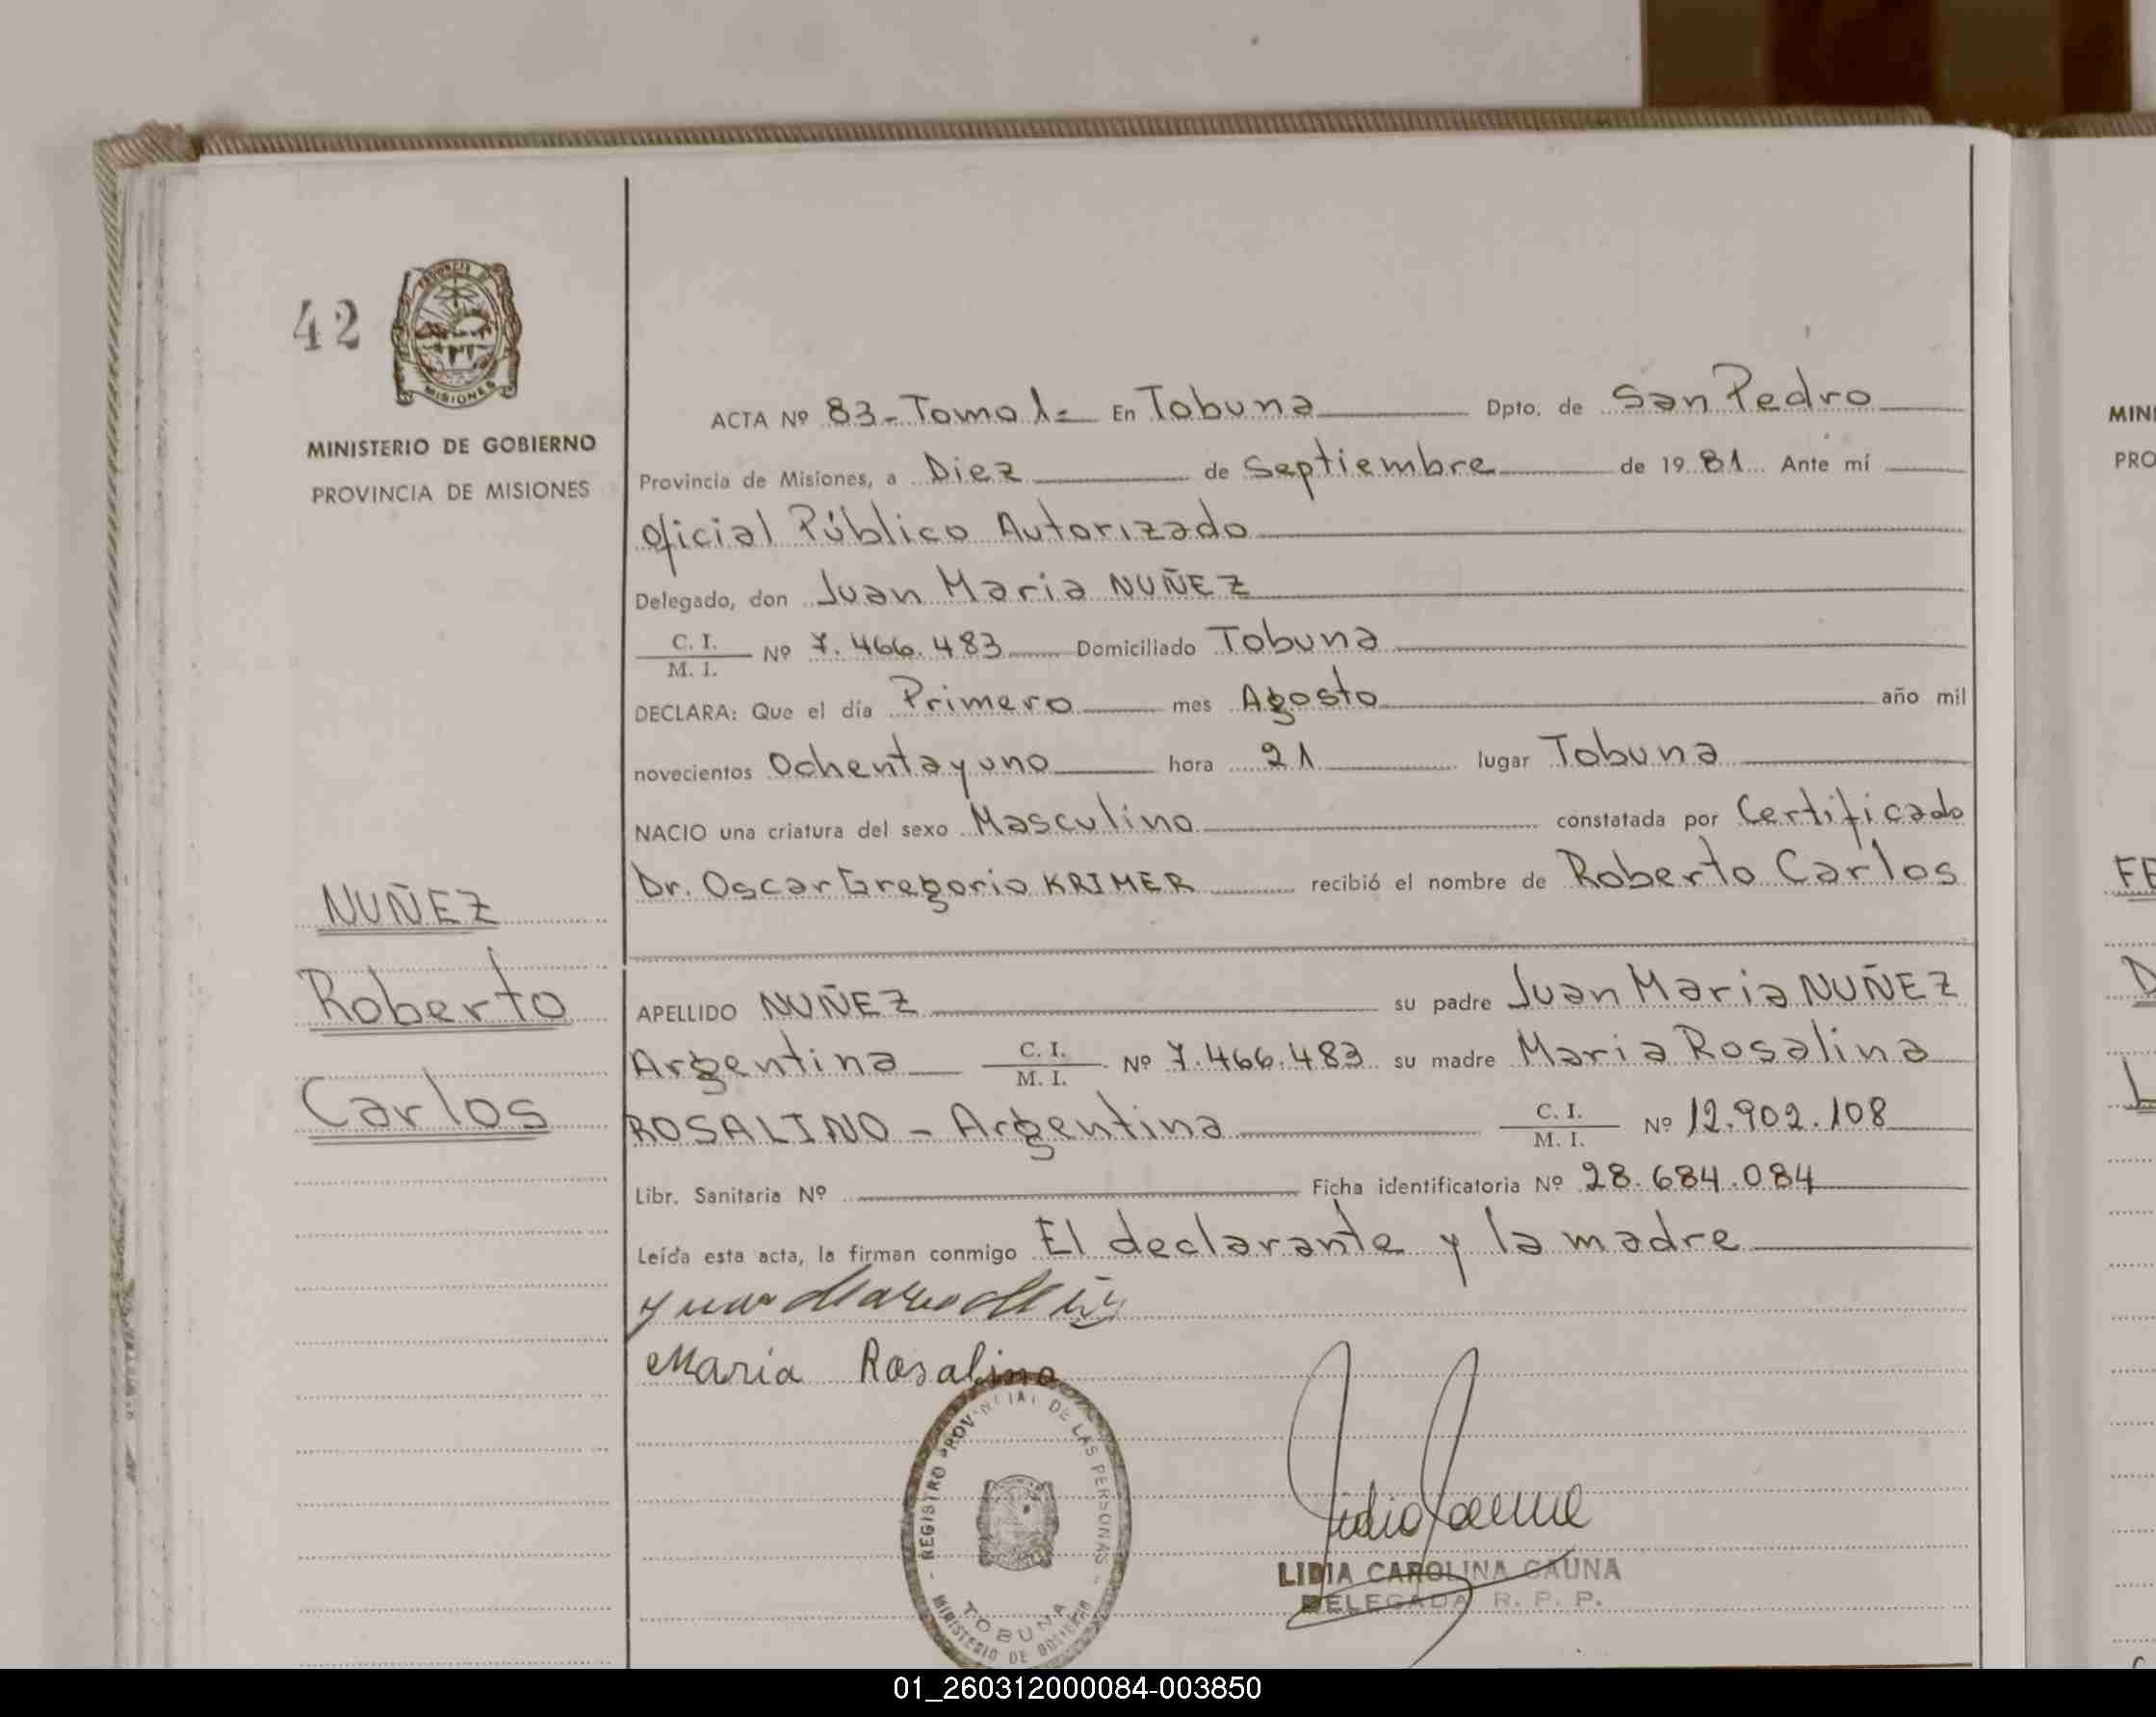 42
MISIONES
MINISTERIO DE GOBIERNO
PROVINCIA DE MISIONES
NUÑEZ
Roberto
Carlos
ACTA Nº 83-Tomo 1= En Tobuna Dpto. de San Pedro
Provincia de Misiones, a Diez de Septiembre de 1981 Ante mí
Oficial Público Autorizado
Delegado, don Juan Maria NUÑEZ
C. I.
M. I. Nº 7.466.483 Domiciliado Tobuna
DECLARA: Que el día Primero mes Agosto año mil
novecientos Ochenta y uno hora 21 lugar Tobuna
NACIO una criatura del sexo Masculino constatada por Certificado
Dr. Oscar Gregorio KRIMER recibió el nombre de Roberto Carlos
APELLIDO NUÑEZ su padre Juan Maria NUÑEZ
Argentina C. I. M. I. Nº 7.466.483 su madre Maria Rosalina
ROSALINO - Argentina C. I. M. I. Nº 12.902.108
Libr. Sanitaria Nº Ficha identificatoria Nº 28.684.084
Leída esta acta, la firman conmigo El declarante y la madre
Maria Rosalino
- REGISTRO PROVINCIAL DE LAS PERSONAS -
TOBUNA
MINISTERIO DE GOBIERNO
LIDIA CAROLINA GAUNA
DELEGADA R. P. P.
MINI
PRO
FE
01_260312000084-003850